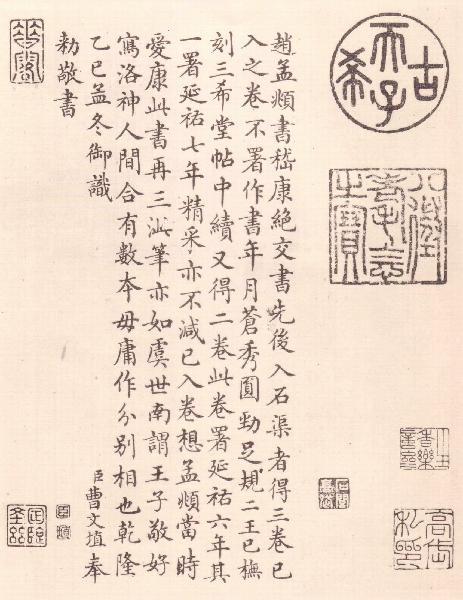 古希天子
八徵耄念之寶
趙孟頫書嵇康絶交書先後入石渠者得三卷已
入之卷不署作書年月蒼秀圓勁足規二王已橅
刻三希堂帖中續又得二卷此卷署延祐六年其
一署延祐七年精采亦不減已入卷想孟頫當時
愛康此書再三泚筆亦如虞世南謂王子敬好
寫洛神人間合有數本毋庸作分別相也乾隆
乙巳孟冬御識 臣曹文埴奉
勅敬書